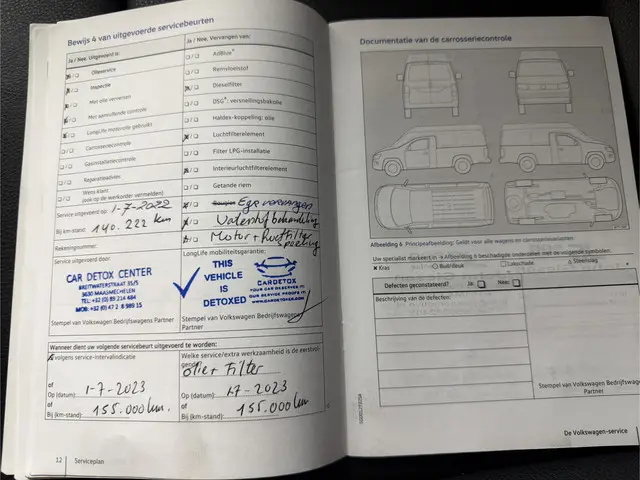 Bewijs 4 van uitgevoerde servicebeurten
Ja / Nee, Uitgevoerd is:
Olieservice
Inspectie
Met olie verversen
Met aanvullende controle
LongLife-motorolie gebruikt
Carrosseriecontrole
Gasinstallatiecontrole
Reparatieadvies
Wens klant
(ook op de werkorder vermelden)
Service uitgevoerd op: 1-7-2022
Bij km-stand: 140.222 km
Rekeningnummer:
Service uitgevoerd door:
CAR DETOX CENTER
BREITWATERSTRAAT 35/5
3630 MAASMECHELEN
TEL: +32 (0) 89 214 484
Stempel van Volkswagen Bedrijfswagens Partner
Ja / Nee, Vervangen van:
AdBlue®
Remvloeistof
Dieselfilter
DSG®: versnellingsbakolie
Haldex-koppeling: olie
Luchtfilterelement
Filter LPG-installatie
Interieurluchtfilterelement
Getande riem
LongLife mobiliteitsgarantie:
THIS
VEHICLE
IS
DETOXED
CARDETOX
YOUR CAR DESERVE IT!
OUR SERVICE PROOFS IT!
WWW.CARDETOXER.COM
Stempel van Volkswagen Bedrijfswagens
Partner
Wanneer dient uw volgende servicebeurt uitgevoerd te worden:
volgens service-intervalindicatie
of
Op (datum): 1-7-2023
of
Bij (km-stand): 155.000 km.
Welke service/extra werkzaamheid is de eerstvol-
gende
Filter
Op (datum): 1-7-2023
of
Bij (km-stand): 155.000 km.
12 Serviceplan
Documentatie van de carrosseriecontrole
Afbeelding 6 Principeafbeelding: Geldt voor alle wagens en carrosserievormen.
Uw specialist markeert in Afbeelding 6 beschadigde onderdelen met de volgende symbolen:
Kras Buil/deuk Lakschade Steenslag
Defecten geconstateerd? Ja: Nee:
Beschrijving van de defecten:
Stempel van Volkswagen Bedrijfswagens
Partner
De Volkswagen-service